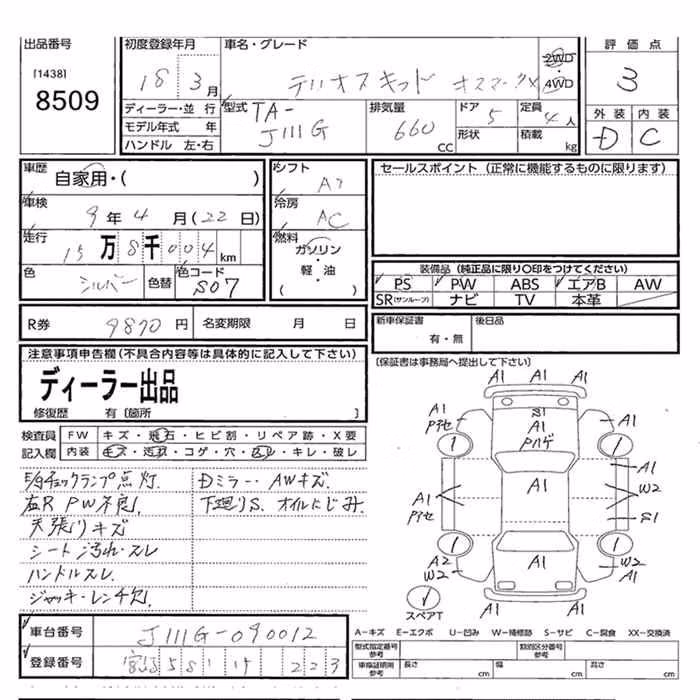 出品番号
[1438]
8509
初度登録年月
18 3月
車名・グレード
テリオスキッド オスマークX
2WD
4WD
評価点
3
ディーラー・並行
モデル年式 年
ハンドル 左・右
型式 TA-
J111G
排気量
660
CC
ドア 5
形状
定員 4人
積載 kg
外装 内装
D C
車歴
自家用・( )
車検
9年4月(22日)
走行
15万8千004km
色 シルバー 色替 色コード S07
シフト AT
冷房 AC
燃料 ガソリン
・軽・油
( )
セールスポイント (正常に機能するものに限ります)
装備品 (純正品に限り○印をつけてください)
PS PW ABS エアB AW
SR(サンルーフ) ナビ TV 本革
R券 9870円 名変期限 月 日
新車保証書 有・無
後日品
注意事項申告欄(不具合内容等は具体的に記入して下さい)
ディーラー出品
修復歴 有〔箇所 〕
(保証書は事務局へ提出して下さい)
検査員 FW キズ・飛石・ヒビ割・リペア跡・X要
記入欄 内装 キズ・汚れ・コゲ・穴・スレ・キレ・破レ
E/gチェックランプ点灯.
右R PW不良.
天張りキズ
シート汚れ・スレ
ハンドルスレ.
ジャッキ・レンチ欠.
Dミラー・AWキズ.
下廻りS. オイルにじみ.
A1
A1 A1 A1
A1
Pアセ
S1
A1
Pハゲ
A1
1 1
A1
A1
Pアセ
A1
A1
W2
S1
1 1
A2
W2
A1
W2
A1
1
スペアT
A1 A1 A1
車台番号 J111G-090012
登録番号 宮城 581 そ 223
A-キズ E-エクボ U-凹み W-補修跡 S-サビ C-腐食 XX-交換済
型式指定番号
参考
類別区分番号
参考
車検証明期
参考
長さ cm 幅 cm 高さ cm